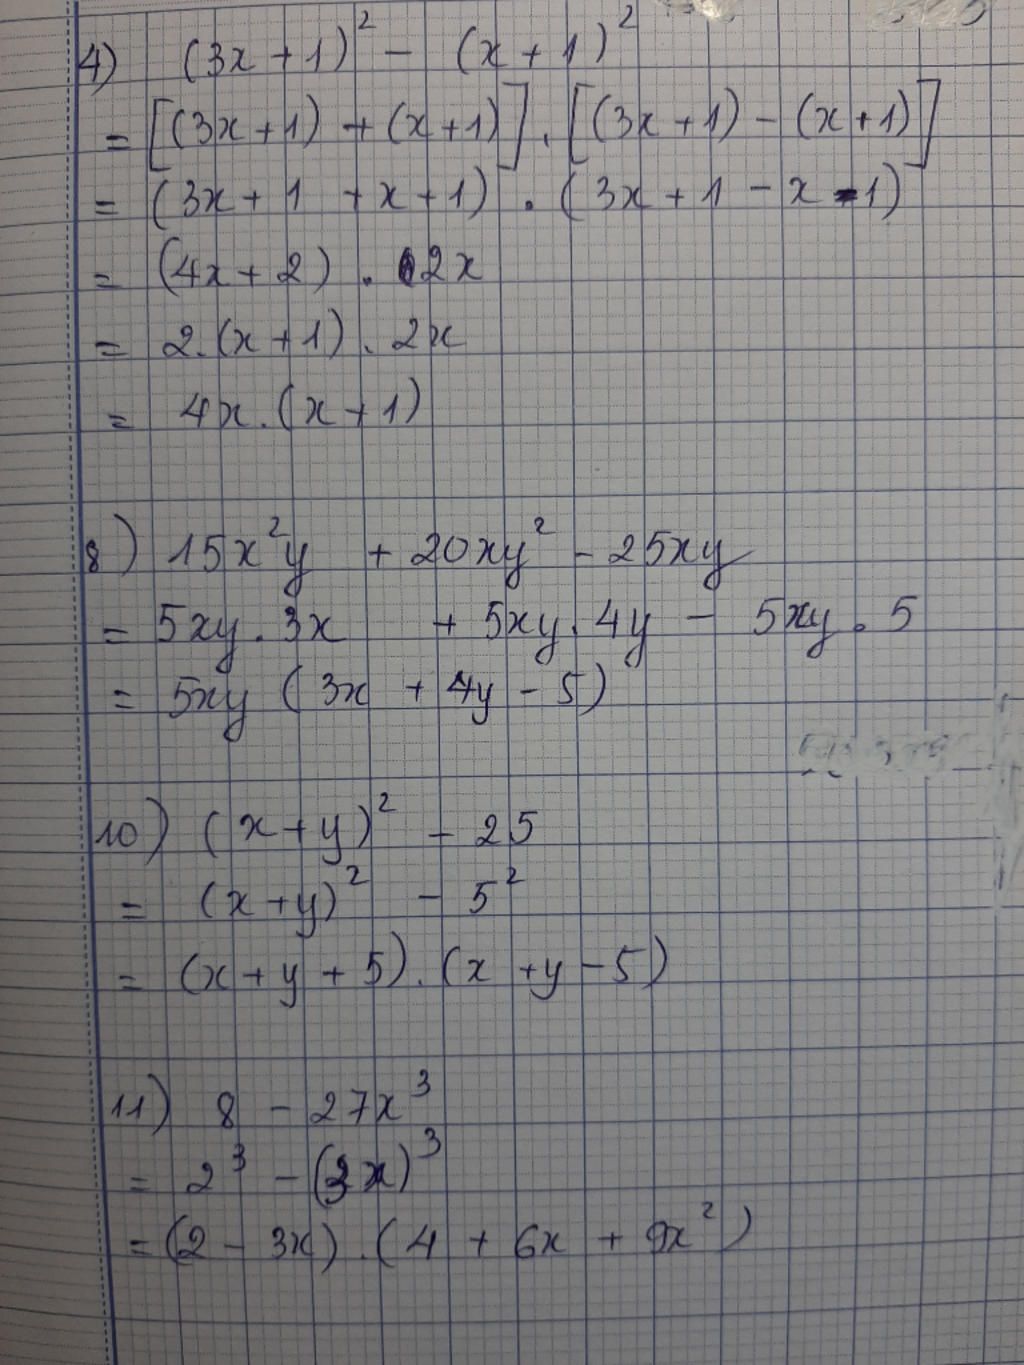 4) (3x + 1)² - (x + 1)²
= [(3x + 1) + (x + 1)] . [(3x + 1) - (x + 1)]
= (3x + 1 + x + 1) . (3x + 1 - x - 1)
= (4x + 2) . 2x
= 2.(x + 1) . 2x
= 4x . (x + 1)
8) 15x²y + 20xy² - 25xy
= 5xy . 3x + 5xy . 4y - 5xy . 5
= 5xy (3x + 4y - 5)
10) (x + y)² - 25
= (x + y)² - 5²
= (x + y + 5) . (x + y - 5)
11) 8 - 27x³
= 2³ - (3x)³
= (2 - 3x) . (4 + 6x + 9x²)